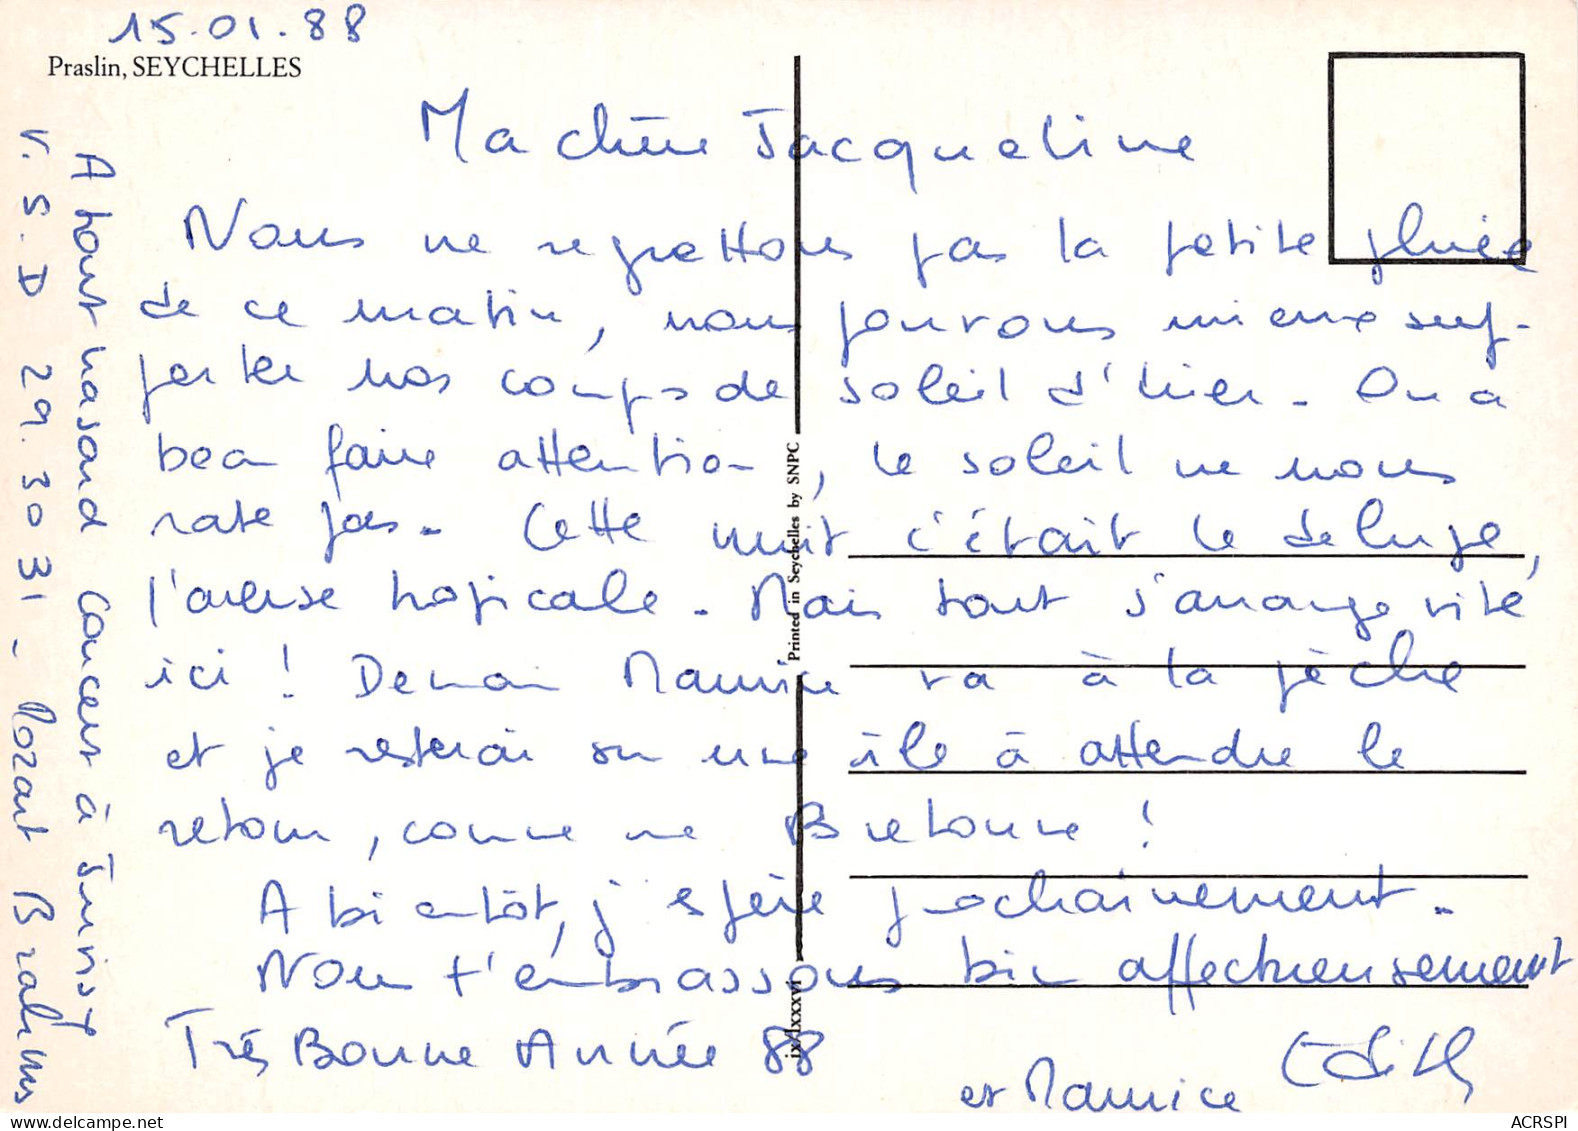 15.01.88
Praslin, SEYCHELLES
Ma chère Jacqueline
Nous ne regrettons pas la petite pluie
de ce matin, nous pouvons mieux sup-
porter nos coups de soleil d'hier. On a
beau faire attention, le soleil ne nous
rate pas. Cette nuit c'était le deluge,
l'averse tropicale. Mais tout s'arrange vite
ici ! Demain Maurice va à la pêche
et je resterai sur une île à attendre le
retour, comme une Bretonne !
A bientôt, j'espère prochainement.
Nous t'embrassons bien affectueusement
Très Bonne Année 88
Edith
et Maurice
A tout hasard Concert à
V. S. D 29. 30 31 - Mozart Brahms
Printed in Seychelles by SNPC
ix/lxxxvi
delcampe.net
ACRSPI